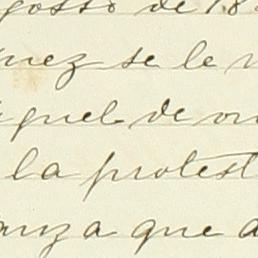 gosto de 18
nez se le
iguel de on
la protest
anza que a